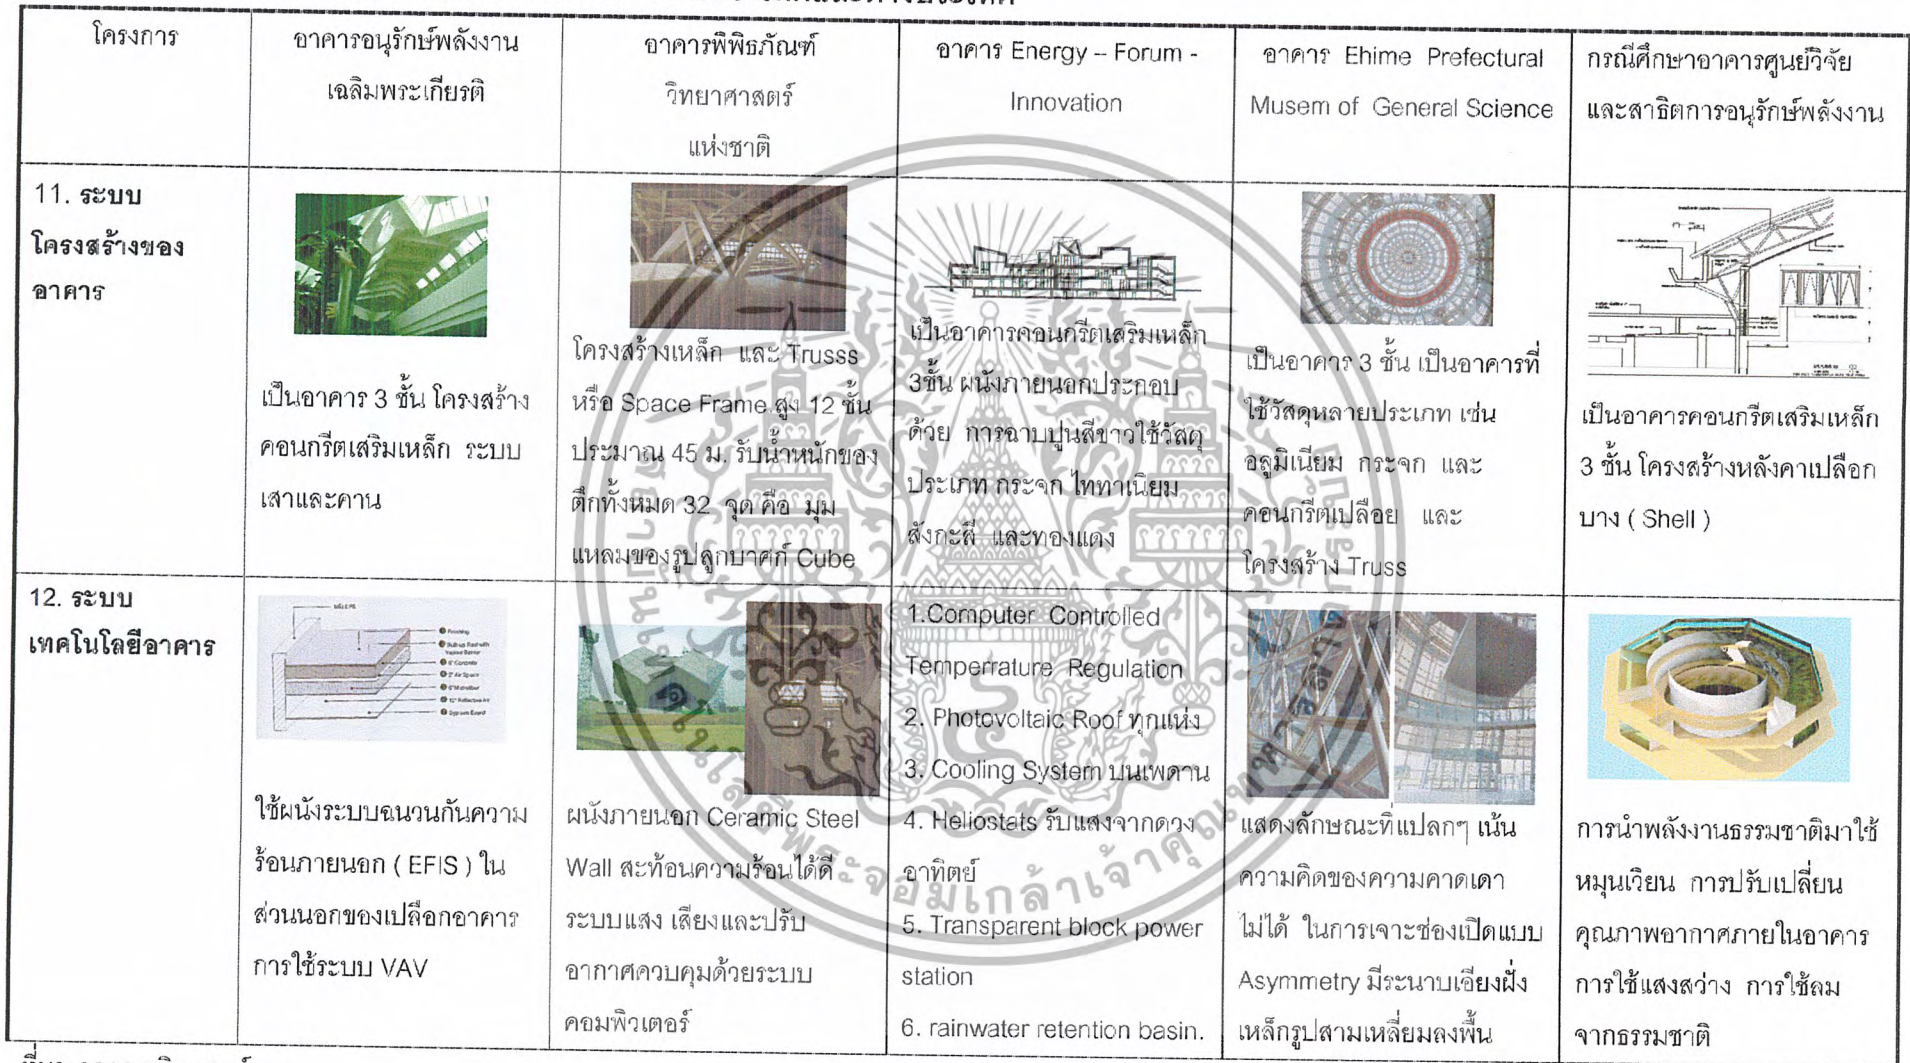 โครงการ
อาคารอนุรักษ์พลังงาน
เฉลิมพระเกียรติ
อาคารพิพิธภัณฑ์
วิทยาศาสตร์
แห่งชาติ
อาคาร Energy – Forum -
Innovation
อาคาร Ehime Prefectural
Musem of General Science
กรณีศึกษาอาคารศูนย์วิจัย
และสาธิตการอนุรักษ์พลังงาน
11. ระบบ
โครงสร้างของ
อาคาร
เป็นอาคาร 3 ชั้น โครงสร้าง
คอนกรีตเสริมเหล็ก ระบบ
เสาและคาน
โครงสร้างเหล็ก และ Trusss
หรือ Space Frame สูง 12 ชั้น
ประมาณ 45 ม. รับน้ำหนักของ
ตึกทั้งหมด 32 จุด คือ มุม
แหลมของรูปลูกบาศก์ Cube
เป็นอาคารคอนกรีตเสริมเหล็ก
3ชั้น ผนังภายนอกประกอบ
ด้วย การฉาบปูนสีขาวใช้วัสดุ
ประเภท กระจก ไททาเนียม
สังกะสี และทองแดง
เป็นอาคาร 3 ชั้น เป็นอาคารที่
ใช้วัสดุหลายประเภท เช่น
อลูมิเนียม กระจก และ
คอนกรีตเปลือย และ
โครงสร้าง Truss
เป็นอาคารคอนกรีตเสริมเหล็ก
3 ชั้น โครงสร้างหลังคาเปลือก
บาง ( Shell )
12. ระบบ
เทคโนโลยีอาคาร
Finishing
Built-up Roof with
Vapour Barrier
6" Concrete
2" Air Space
6" Microfiber
12" Reflective Air
Gypsum Board
ใช้ผนังระบบฉนวนกันความ
ร้อนภายนอก ( EFIS ) ใน
ส่วนนอกของเปลือกอาคาร
การใช้ระบบ VAV
ผนังภายนอก Ceramic Steel
Wall สะท้อนความร้อนได้ดี
ระบบแสง เสียงและปรับ
อากาศควบคุมด้วยระบบ
คอมพิวเตอร์
1.Computer Controlled
Temperrature Regulation
2. Photovoltaic Roof ทุกแห่ง
3. Cooling System บนเพดาน
4. Heliostats รับแสงจากดวง
อาทิตย์
5. Transparent block power
station
6. rainwater retention basin.
แสดงลักษณะที่แปลกๆ เน้น
ความคิดของความคาดเดา
ไม่ได้ ในการเจาะช่องเปิดแบบ
Asymmetry มีระนาบเอียงฝั่ง
เหล็กรูปสามเหลี่ยมลงพื้น
การนำพลังงานธรรมชาติมาใช้
หมุนเวียน การปรับเปลี่ยน
คุณภาพอากาศภายในอาคาร
การใช้แสงสว่าง การใช้ลม
จากธรรมชาติ